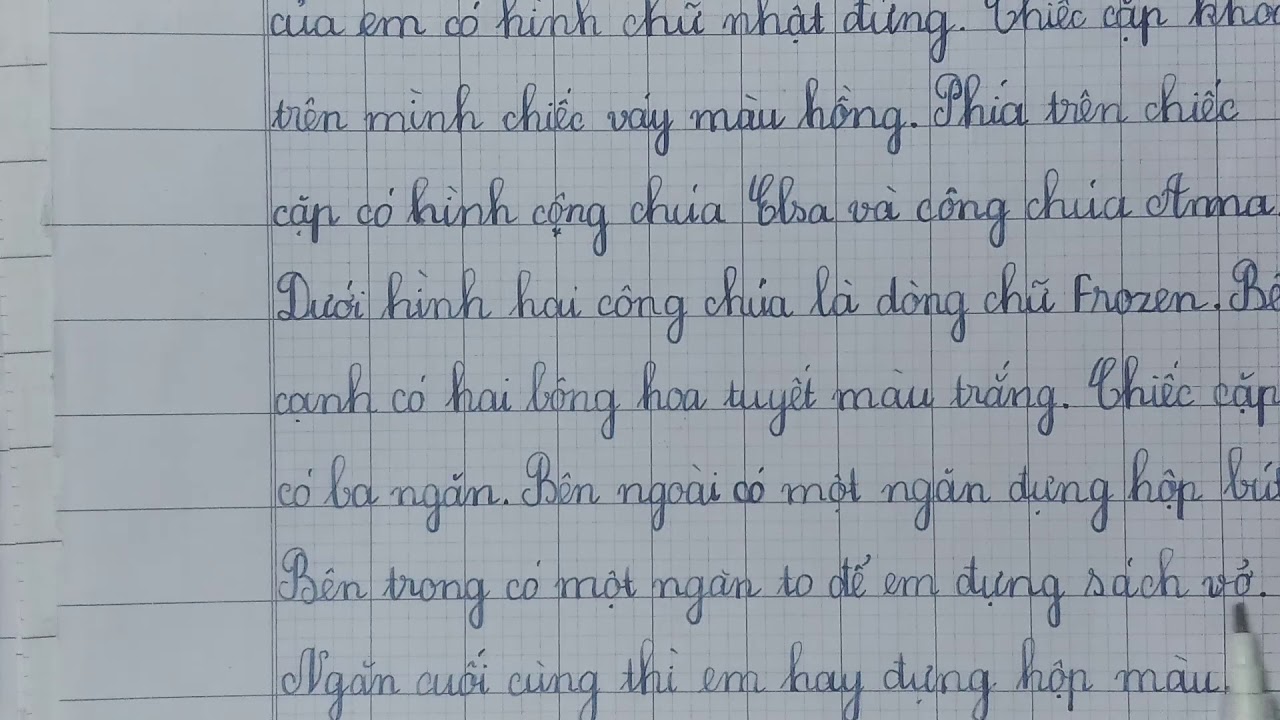 của em có hình chữ nhật đứng. Chiếc cặp khoác
trên mình chiếc váy màu hồng. Phía trên chiếc
cặp có hình công chúa Elsa và công chúa Anna.
Dưới hình hai công chúa là dòng chữ Frozen. Bê
cạnh có hai bông hoa tuyết màu trắng. Chiếc cặp
có ba ngăn. Bên ngoài có một ngăn đựng hộp bú
Bên trong có một ngăn to để em đựng sách vở.
Ngăn cuối cùng thì em hay đựng hộp màu.